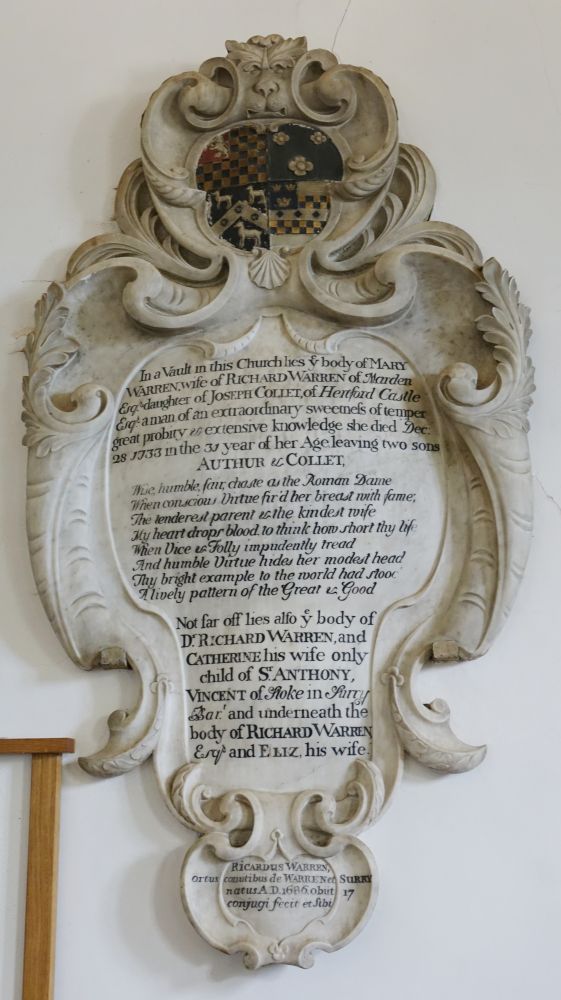 In a Vault in this Church lies yͤ body of MARY
WARREN, wife of RICHARD WARREN of Marden
Esqʳ. daughter of JOSEPH COLLET, of Hertford Castle
Esqʳ. a man of an extraordinary sweetneſs of temper
great probity & extensive knowledge she died Dec:
28 1733 in the 31 year of her Age leaving two sons
AUTHUR & COLLET,
Wise, humble, fair, chaste as the Roman Dame
When conscious Virtue fir'd her breast with fame;
The tenderest parent & the kindest wife
My heart drops blood, to think how short thy life
When Vice & Folly impudently tread
And humble Virtue hides her modest head
Thy bright example to the world had stood
A lively pattern of the Great & Good
Not far off lies alſo yͤ body of
Dʳ. RICHARD WARREN, and
CATHERINE his wife only
child of Sʳ. ANTHONY,
VINCENT of Stoke in Surry
Barᵗ. and underneath the
body of RICHARD WARREN
Esqʳ. and ELIZ, his wife.
RICARDUS WARREN,
ortus comitibus de WARREN et SURRY
natus A.D. 1686. obiit 17
conjugi fecit et sibi